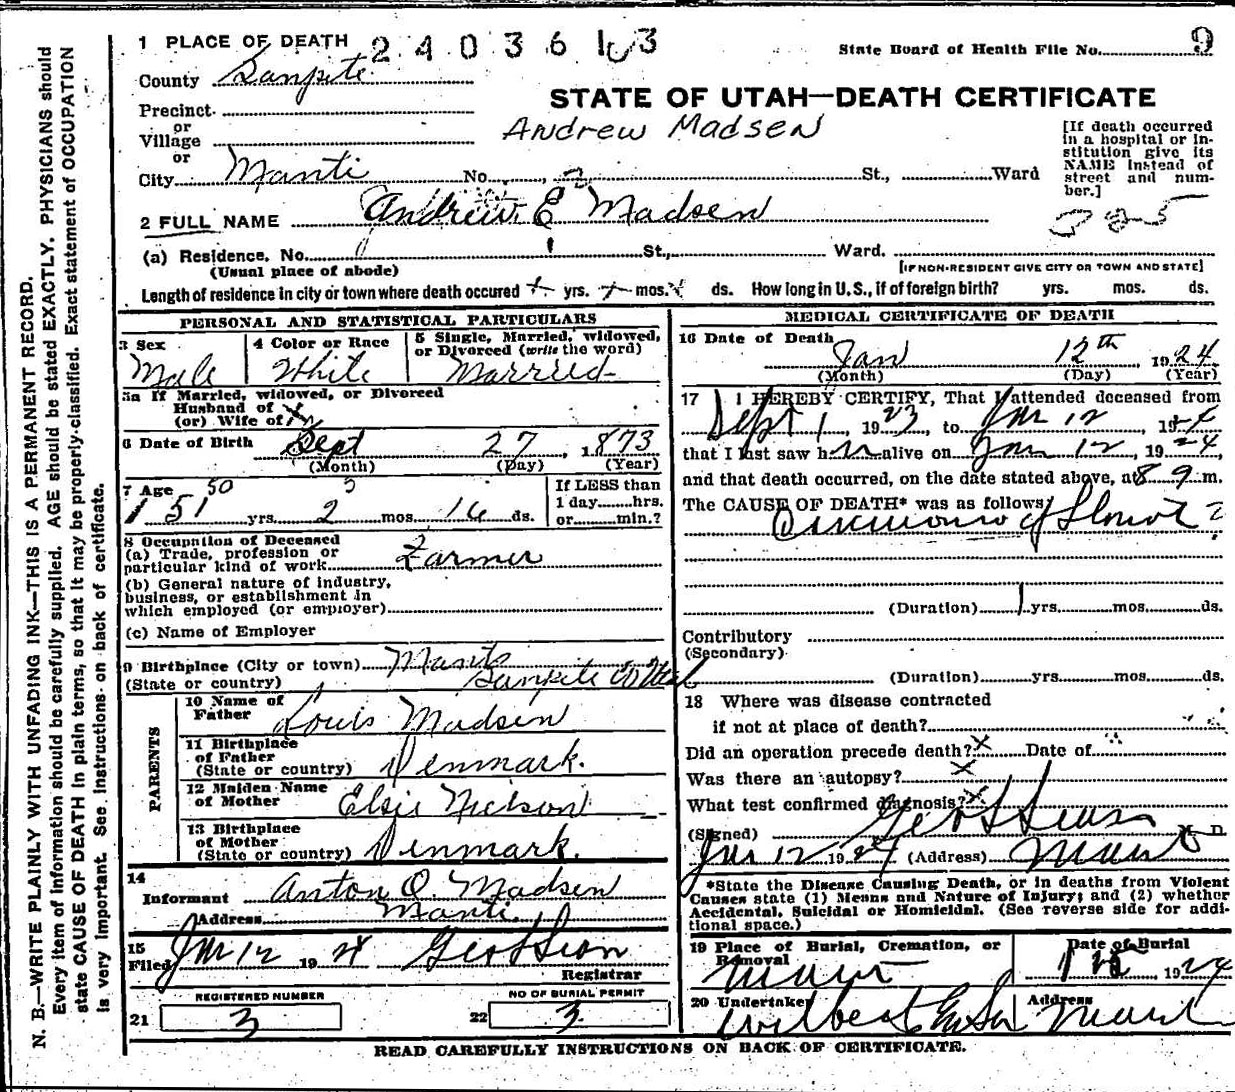 1 PLACE OF DEATH 2403613
State Board of Health File No. 9
County Sanpete
STATE OF UTAH—DEATH CERTIFICATE
Precinct
or
Village
Andrew Madsen
[If death occurred in a hospital or institution give its NAME instead of street and number.]
or
City Manti No. St., Ward
2 FULL NAME Andrew E Madsen
(a) Residence. No. St., Ward.
(Usual place of abode)
[IF NON-RESIDENT GIVE CITY OR TOWN AND STATE]
Length of residence in city or town where death occured yrs. mos. ds. How long in U.S., if of foreign birth? yrs. mos. ds.
PERSONAL AND STATISTICAL PARTICULARS
3 Sex
Male
4 Color or Race
White
5 Single, Married, widowed, or Divorced (write the word)
Married
5a If Married, widowed, or Divorced
Husband of
(or) Wife of
6 Date of Birth Sept 27, 1873
(Month) (Day) (Year)
7 Age 50 3
51 yrs. 2 mos. 16 ds.
If LESS than
1 day hrs.
or min.?
8 Occupation of Deceased
(a) Trade, profession or
particular kind of work Farmer
(b) General nature of industry,
business, or establishment in
which employed (or employer)
(c) Name of Employer
9 Birthplace (City or town) Manti
(State or country) Sanpete Co Utah
PARENTS
10 Name of
Father Louis Madsen
11 Birthplace
of Father
(State or country) Denmark.
12 Maiden Name
of Mother Elsie Nielson
13 Birthplace
of Mother
(State or country) Denmark.
14
Informant Anton O. Madsen
Address Manti.
15
Filed Jan 12 1924
Registrar
21 REGISTERED NUMBER
3
22 NO OF BURIAL PERMIT
3
MEDICAL CERTIFICATE OF DEATH
16 Date of Death
Jan 12th 1924
(Month) (Day) (Year)
17 I HEREBY CERTIFY, That I attended deceased from
Sept 1, 1923, to Jan 12 1924
that I last saw him alive on Jan 12, 1924,
and that death occurred, on the date stated above, at 8 9 m.
The CAUSE OF DEATH* was as follows:
(Duration) 1 yrs. mos. ds.
Contributory
(Secondary)
(Duration) yrs. mos. ds.
18 Where was disease contracted
if not at place of death?
Did an operation precede death? X Date of
Was there an autopsy? X
What test confirmed diagnosis? X
(Signed)
Jan 12 1924 (Address) Manti
*State the Disease Causing Death, or in deaths from Violent
Causes state (1) Means and Nature of Injury; and (2) whether
Accidental, Suicidal or Homicidal. (See reverse side for addi-
tional space.)
19 Place of Burial, Cremation, or
Removal
Manti
Date of Burial
1924
20 Undertaker
Address
Manti
READ CAREFULLY INSTRUCTIONS ON BACK OF CERTIFICATE.
N. B.—WRITE PLAINLY WITH UNFADING INK—THIS IS A PERMANENT RECORD.
Every item of information should be carefully supplied. AGE should be stated EXACTLY. PHYSICIANS should
state CAUSE OF DEATH in plain terms, so that it may be properly classified. Exact statement of OCCUPATION
is very important. See instructions on back of certificate.